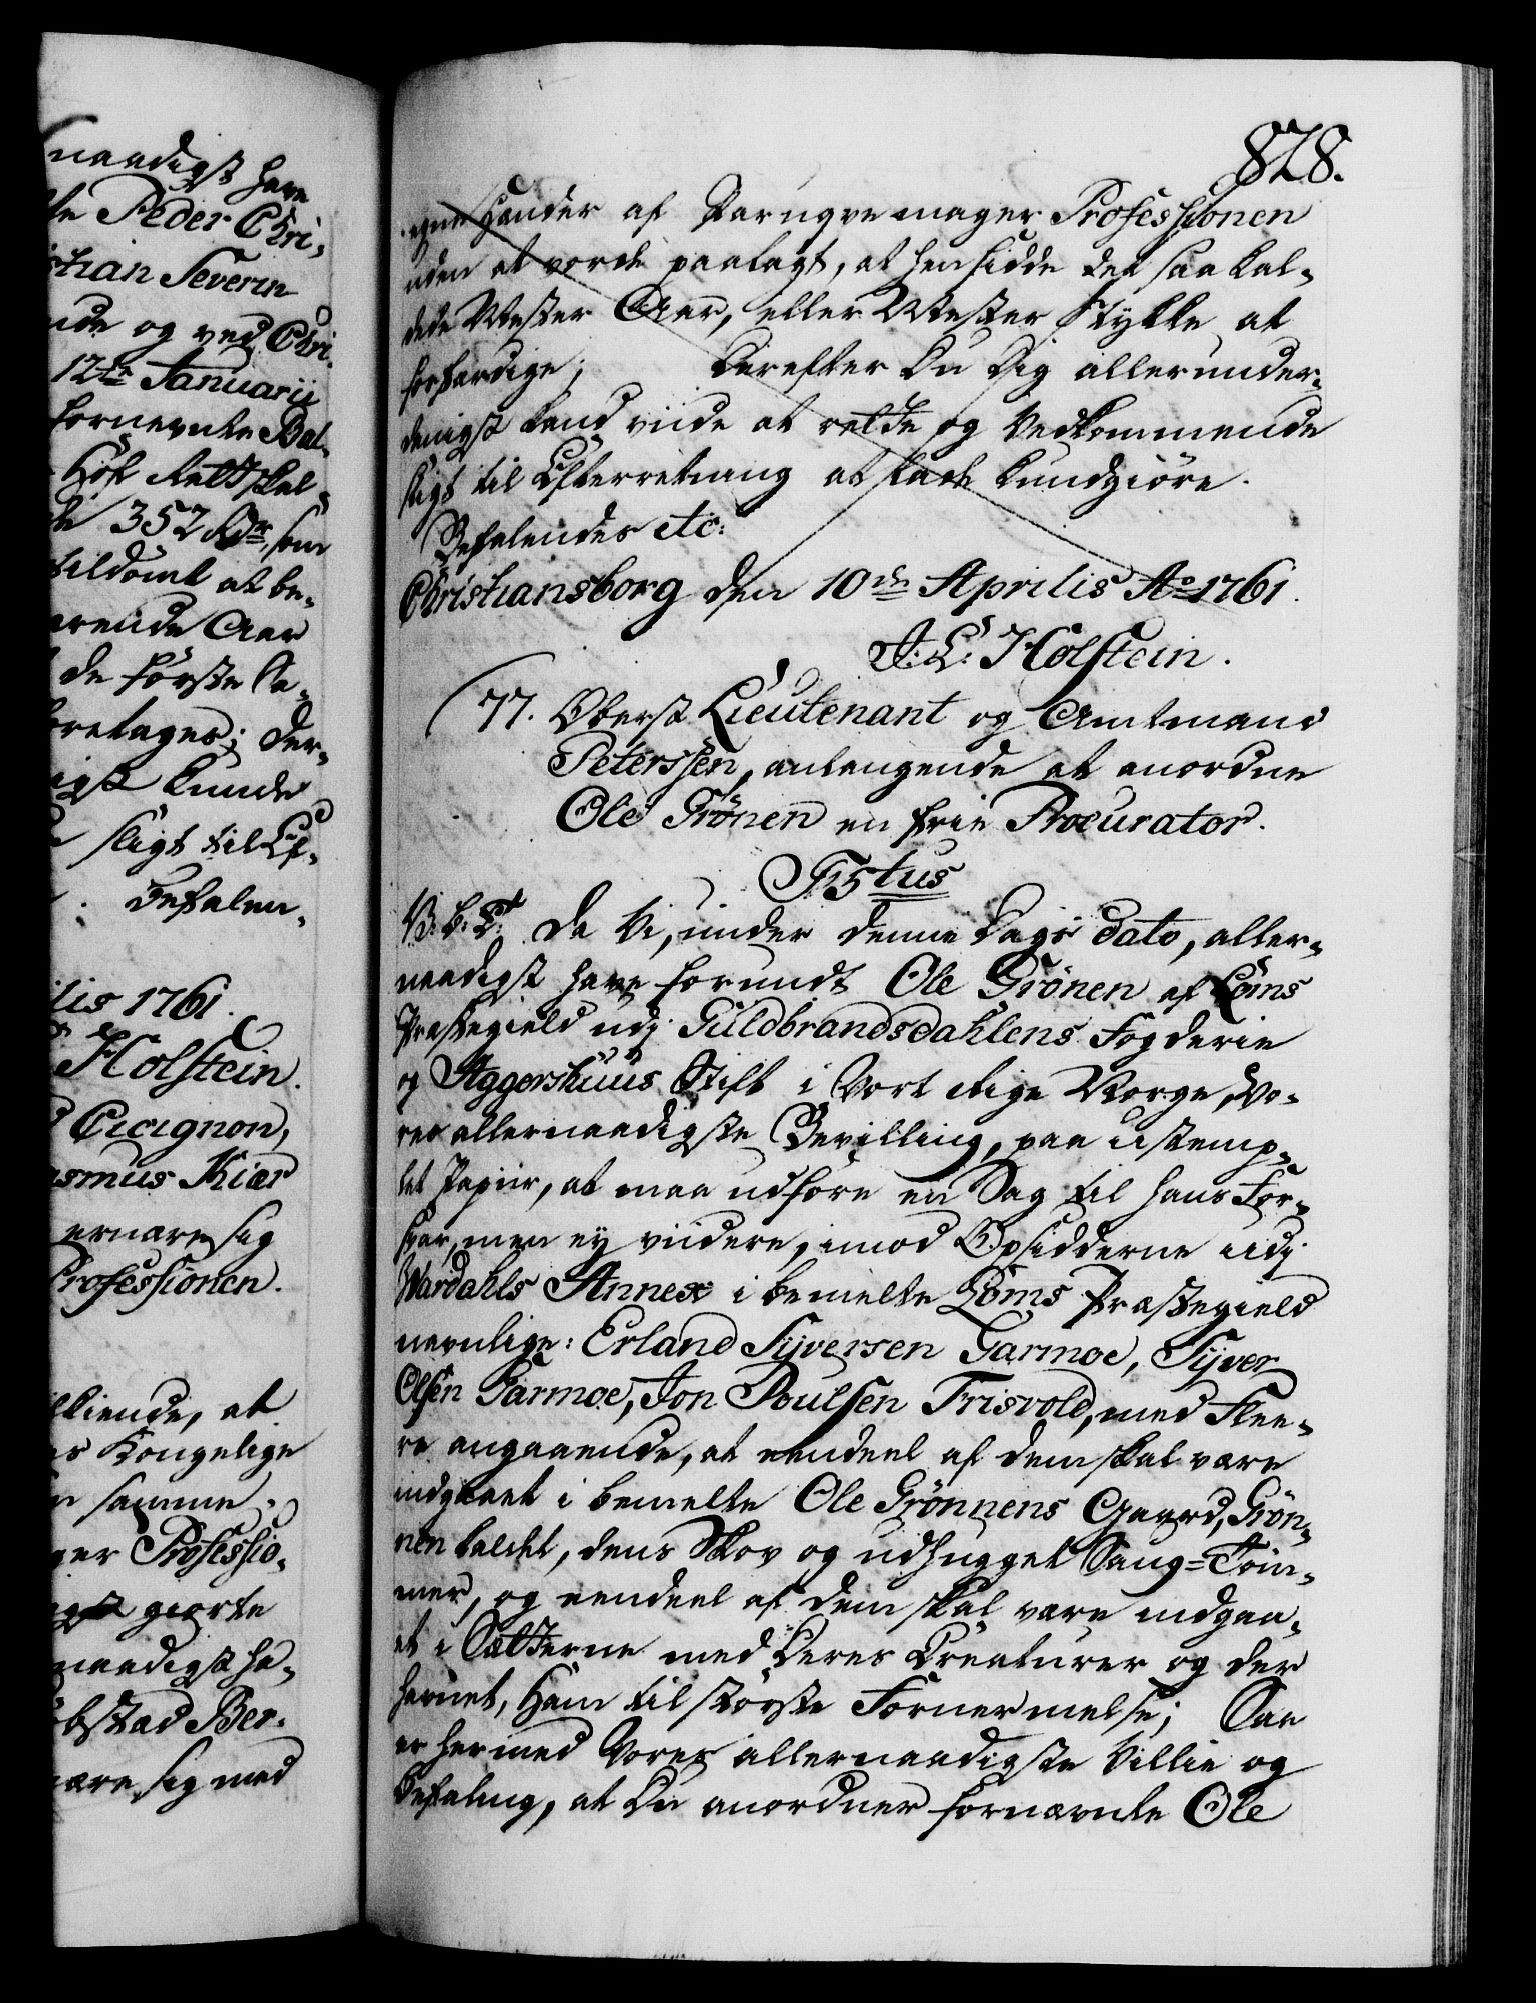 naadigst have
Peder Chri-
stian Severin
og ved Chri-
12te Januarii
fornevnte Bal-
352 Rdr, som
tildömt at be-
de förste Sa-
foretages; der-
kunde
sligt til Ef-
Befalen-
lis 1761.
Holstein.
Cicignon,
asmus Kiær
ernære sig
Professionen.
at
Kongelige
samme
Professio-
giorte
naadigst ha-
bstad Ber-
nære sig med
828.
egne Hænder af Parugvemager Professionen
uden at vorde paalagt, at hensidde det saa kal-
dede Mester Aar, eller Mester Stykke at
forfærdige; Derefter Du Dig allerunder-
danigst kand viide at rette og Vedkommende
sligt til Efterretning at lade kundgiöre.
Befalendes etc:
Christiansborg den 10de Aprilis Ao 1761.
J: L: Holstein.
77. Oberst Lieutenant og Amtmand
Peterssen, anlangende at anordne
Ole Grönen en frie Procurator.
F5tus
V: b: G: t Da Vi, under denne Dags dato, aller-
naadigst have forundt Ole Grönen af Loms
Præstegield udj Guldbrandsdahlens Fogderie
og Aggershuus Stift i Vort Rige Norge, Vo-
res allernaadigste Bevilling, paa ustemp-
let Papiir, at maa udföre en Sag til hans For-
svar, men ey viidere, imod Opsidderne udj
Wardahls Annex i bemelte Loms Præstegield
nemlige: Erland Syversen Garmoe, Syver
Olsen Garmoe, Jon Poulsen Frisvold, med Flee-
re angaaende, at eendeel af dem skal være
indgaaet i bemelte Ole Grönnens Gaard, Grön-
nen kaldet, dens Skov og udhugget Saug-Töm-
mer, og eendeel af dem skal være indgaa-
et i Sætterne med Deres Creaturer og der
havnet, Ham til störste Fornermelse; Saa
er hermed Vores allernaadigste Villie og
Befaling, at Du anordner fornævnte Ole